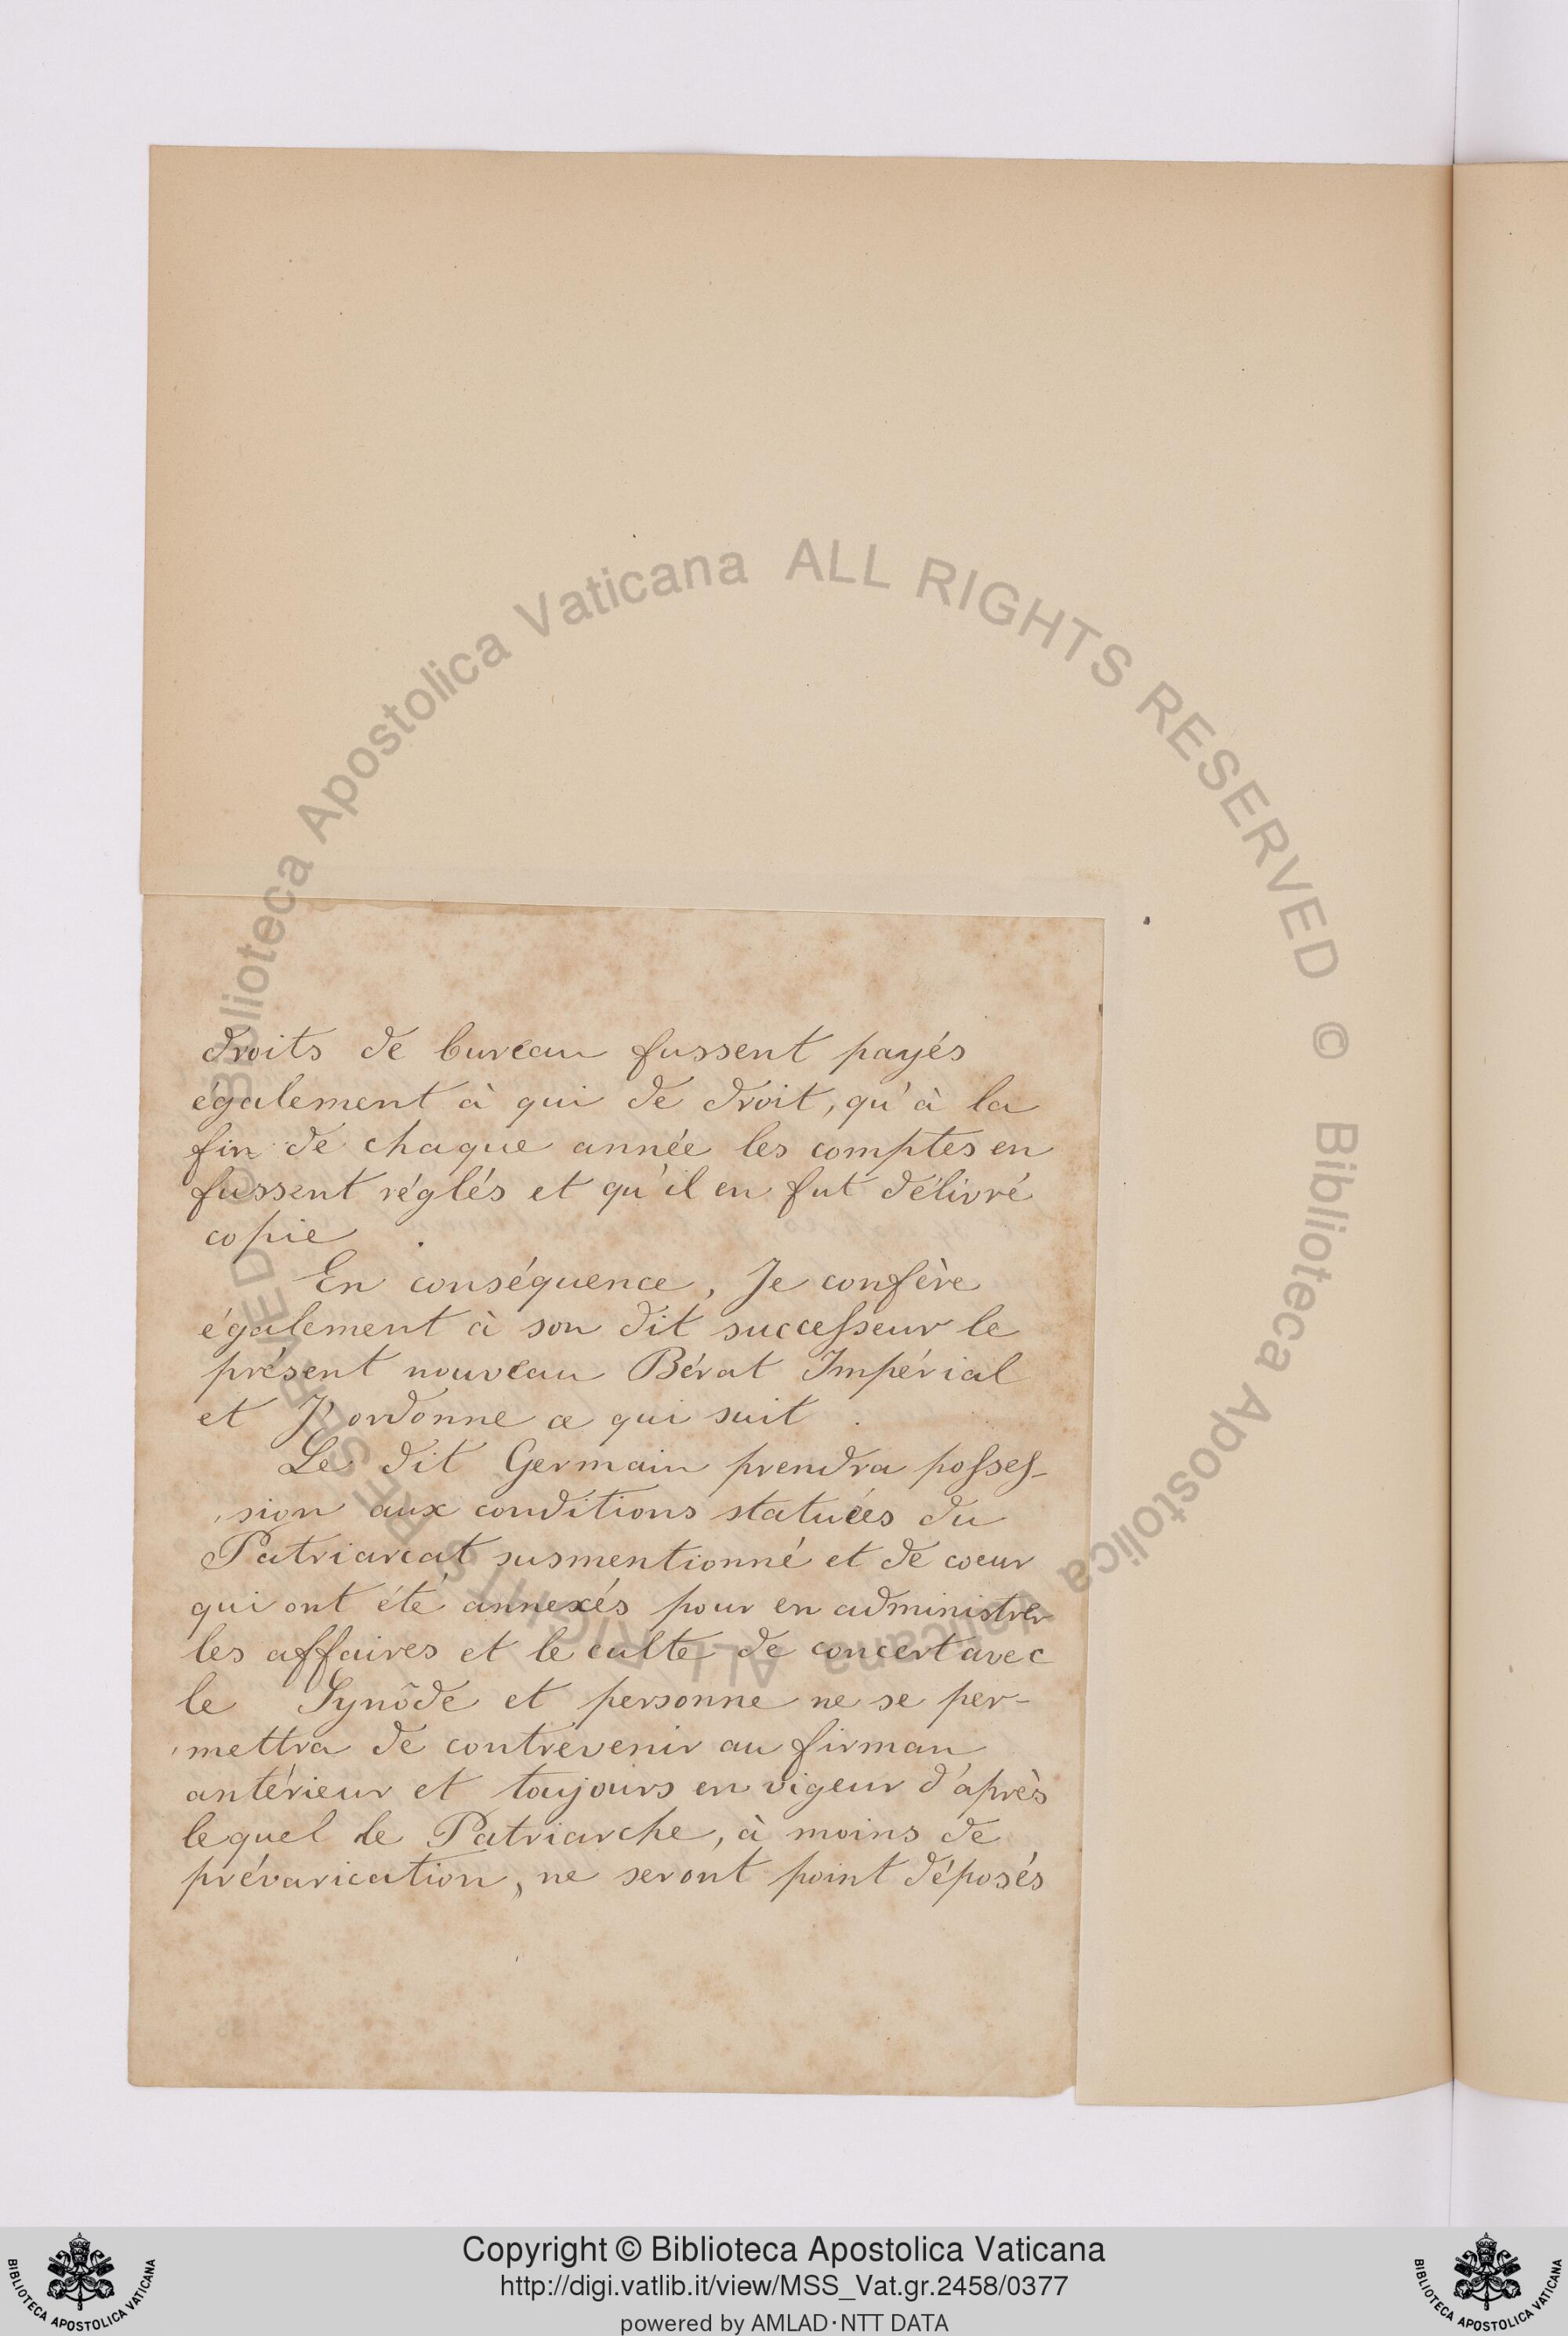 droits de bureau fussent payés
également à qui de droit, qu'à la
fin de chaque année les comptes en
fussent réglés et qu'il en fut délivré
copie.
En conséquence, Je confère
également à son dit successeur le
présent nouveau Bérat Impérial
et J'ordonne ce qui suit.
Le dit Germain prendra posses-
sion aux conditions statuées du
Patriarcat susmentionné et de coeur
qui ont été annexés pour en administrer
les affaires et le culte de concert avec
le Synôde et personne ne se per-
mettra de contrevenir au firman
antérieur et toujours en vigeur d'après
lequel le Patriarche, à moins de
prévarication, ne seront point déposés
© Biblioteca Apostolica Vaticana ALL RIGHTS RESERVED
© Biblioteca Apostolica Vaticana ALL RIGHTS RESERVED
Copyright © Biblioteca Apostolica Vaticana
http://digi.vatlib.it/view/MSS_Vat.gr.2458/0377
powered by AMLAD·NTT DATA
BIBLIOTECA APOSTOLICA VATICANA
BIBLIOTECA APOSTOLICA VATICANA